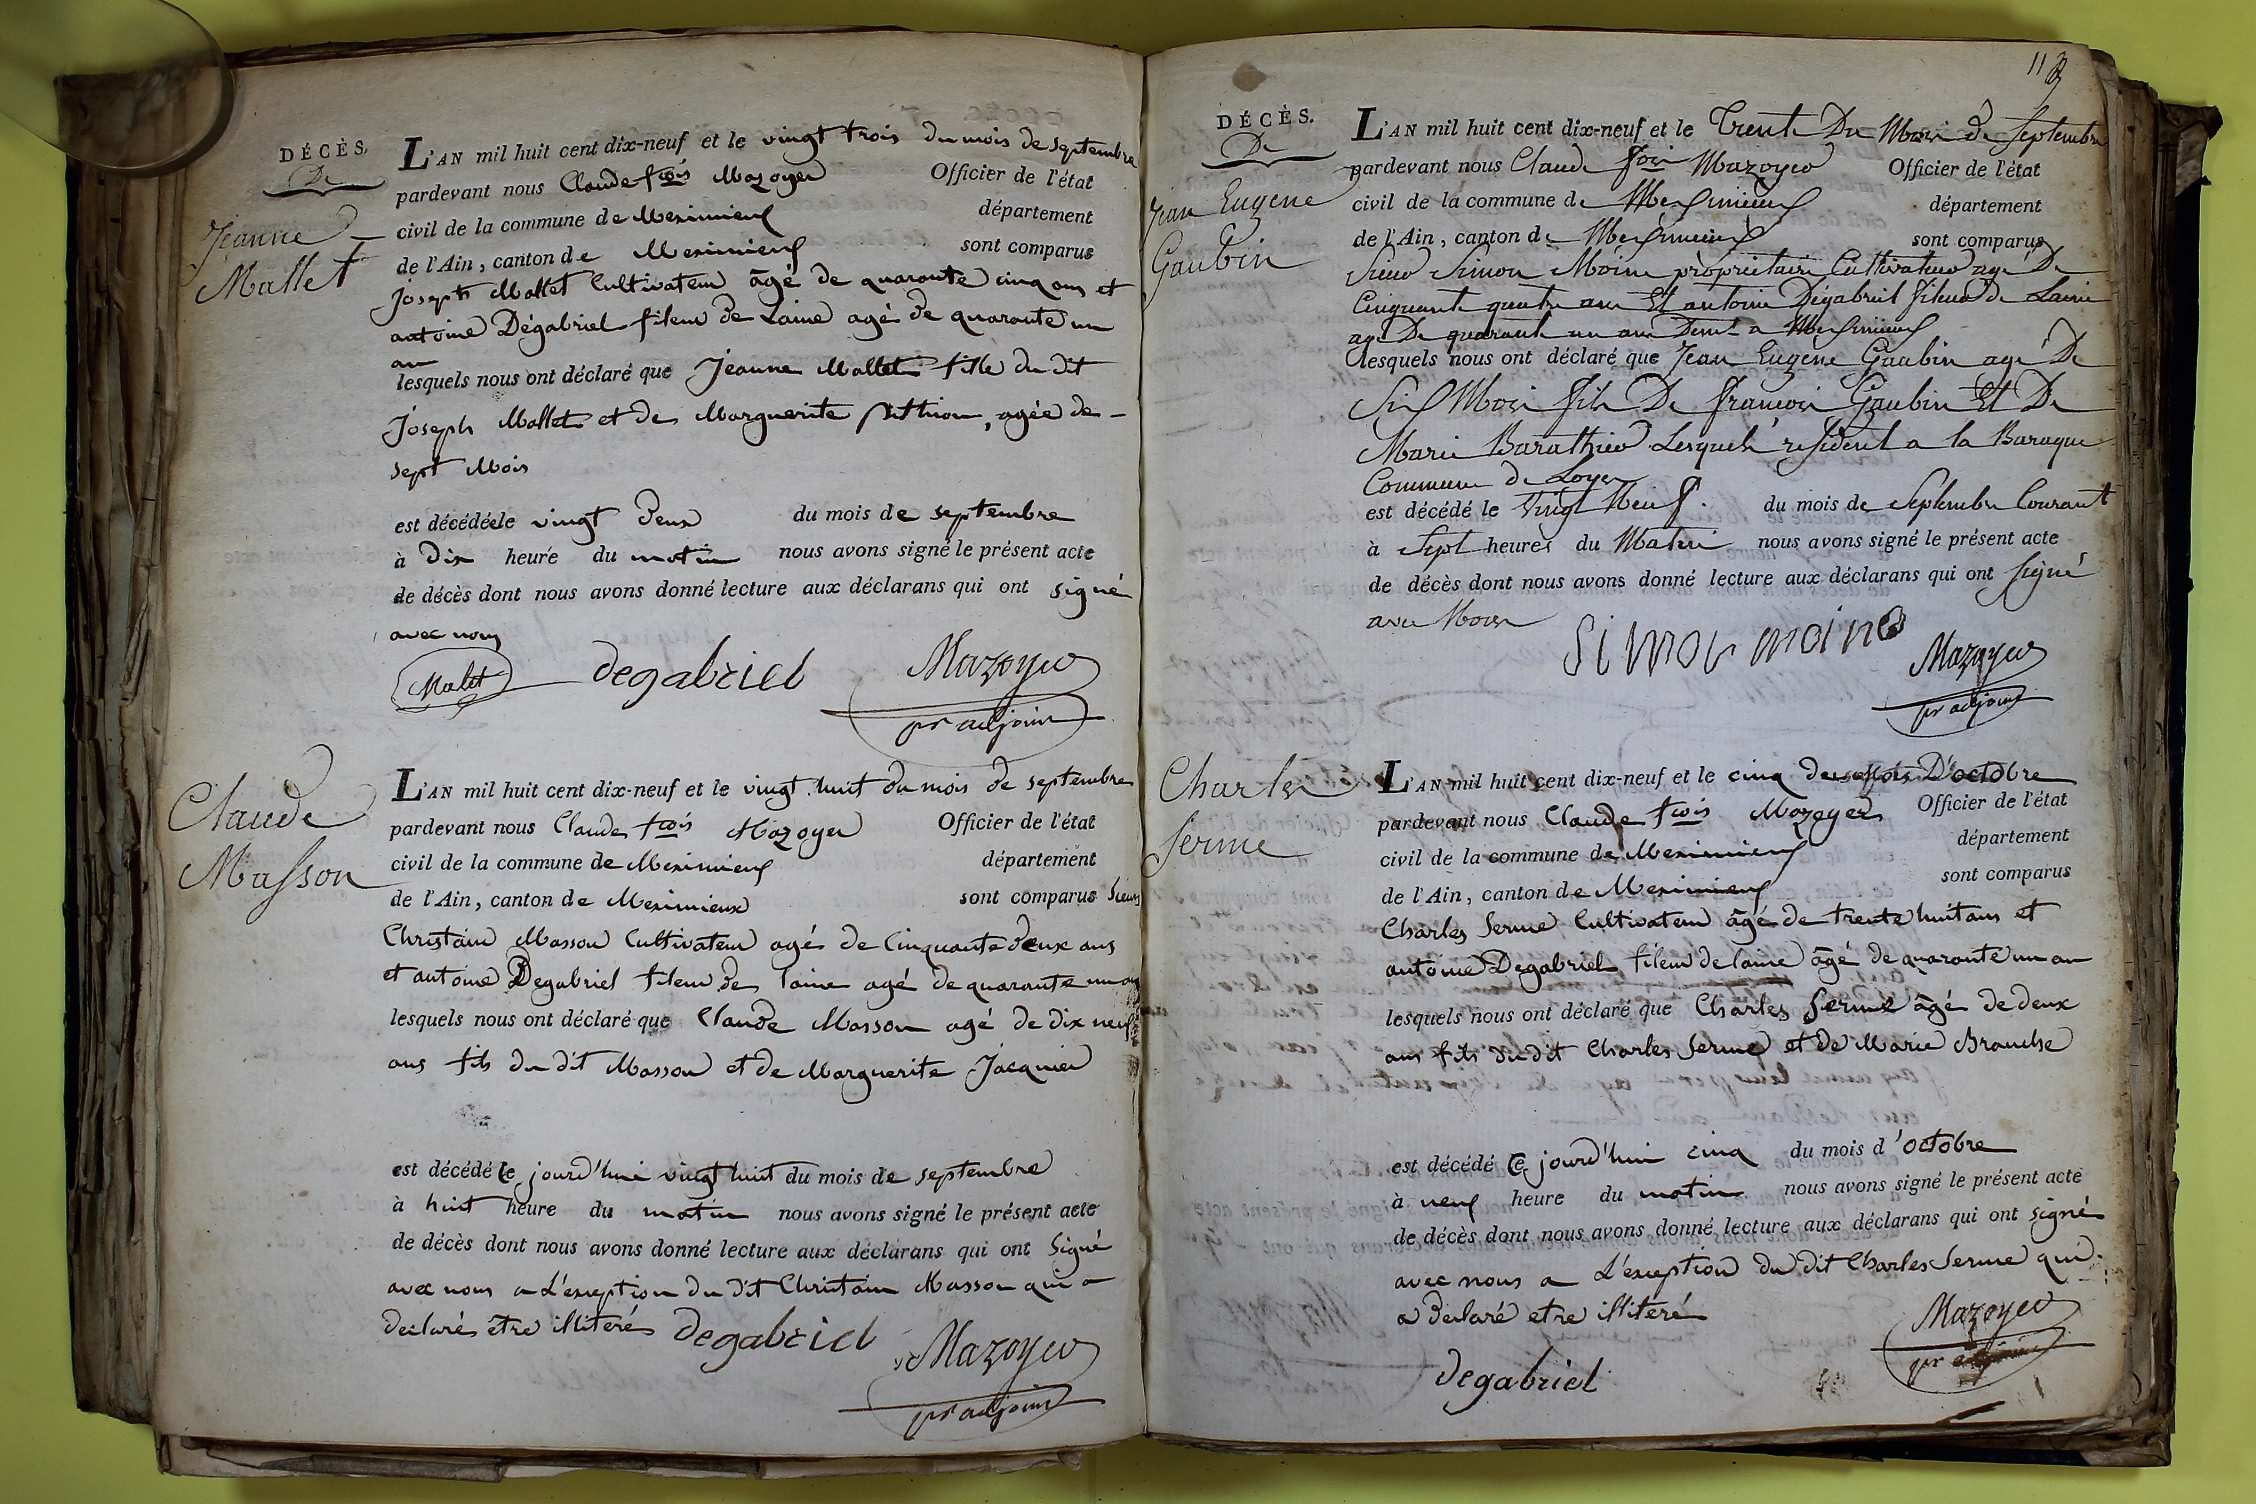 DÉCÈS.
De
Jeanne
Mallet
L'AN mil huit cent dix-neuf et le vingt trois du mois de septembre
pardevant nous Claude fcois Mazoyer Officier de l'état
civil de la commune de Meximieux département
de l'Ain, canton de Meximieux sont comparus
joseph Mallet Cultivateur âgé de quarante cinq ans et
antoine Dégabriel fileur de Laine agé de quarante un
an
lesquels nous ont déclaré que Jeanne Mallet fille du dit
Joseph Mallet et de Marguerite , agée de
sept Mois
est décédée le vingt deux du mois de septembre
à dix heure du matin nous avons signé le présent acte
de décès dont nous avons donné lecture aux déclarans qui ont signé
avec nous
Malet degabriel Mazoyer
pr adjoint
Claude
Masson
L'AN mil huit cent dix-neuf et le vingt huit du mois de septembre
pardevant nous Claude fcois Mazoyer Officier de l'état
civil de la commune de Meximieux département
de l'Ain, canton de Meximieux sont comparus Sieurs
Masson Cultivateur agé de Cinquante deux ans
et antoine Degabriel fileur de laine agé de quarante un an
lesquels nous ont déclaré que Claude Masson agé de dix neuf
ans fils du dit Masson et de Marguerite Jacquier
est décédé ce jourd'hui vingt huit du mois de septembre
à huit heure du matin nous avons signé le présent acte
de décès dont nous avons donné lecture aux déclarans qui ont signé
avec nous a L'exception du dit Masson qui a
declarés être illiterés degabriel Mazoyer
pr adjoint
113
DÉCÈS.
De
Jean Eugene
Gaubin
L'AN mil huit cent dix-neuf et le Trente Du Mois de Septembre
pardevant nous Claude fcois Mazoyer Officier de l'état
civil de la commune de Meximieux département
de l'Ain, canton de Meximieux sont comparus
Sieur Simon Moine propriétaire Cultivateur agé De
Cinquante quatre ans Et antoine Dégabriel fileur de Laine
agé De quarante un ans Demt a Meximieux
lesquels nous ont déclaré que Jean Eugene Gaubin agé De
Six Mois fils De francois Gaubin Et De
Marie Barathier Lesquels résident a la Baraque
Commune de Loyes
est décédé le Vingt Neuf du mois de Septembre Courant
à Sept heures du Matin nous avons signé le présent acte
de décès dont nous avons donné lecture aux déclarans qui ont Signé
avec Nous
Simon moine Mazoyer
pr adjoint
Charles
Serme
L'AN mil huit cent dix-neuf et le cinq du mois D'octobre
pardevant nous Claude fcois Mazoyer Officier de l'état
civil de la commune de Meximieux département
de l'Ain, canton de Meximieux sont comparus
Charles Serme Cultivateur âgé de trente huit ans et
antoine Degabriel fileur de laine âgé de quarante un an
lesquels nous ont déclaré que Charles Serme âgé de deux
ans fils du dit Charles Serme et de Marie Branche
est décédé ce jourd'hui cinq du mois d'octobre
à neuf heure du matin nous avons signé le présent acte
de décès dont nous avons donné lecture aux déclarans qui ont signé
avec nous a L'exception du dit Charles Serme qui
a declaré etre illiteré
Mazoyer
pr adjoint
degabriel